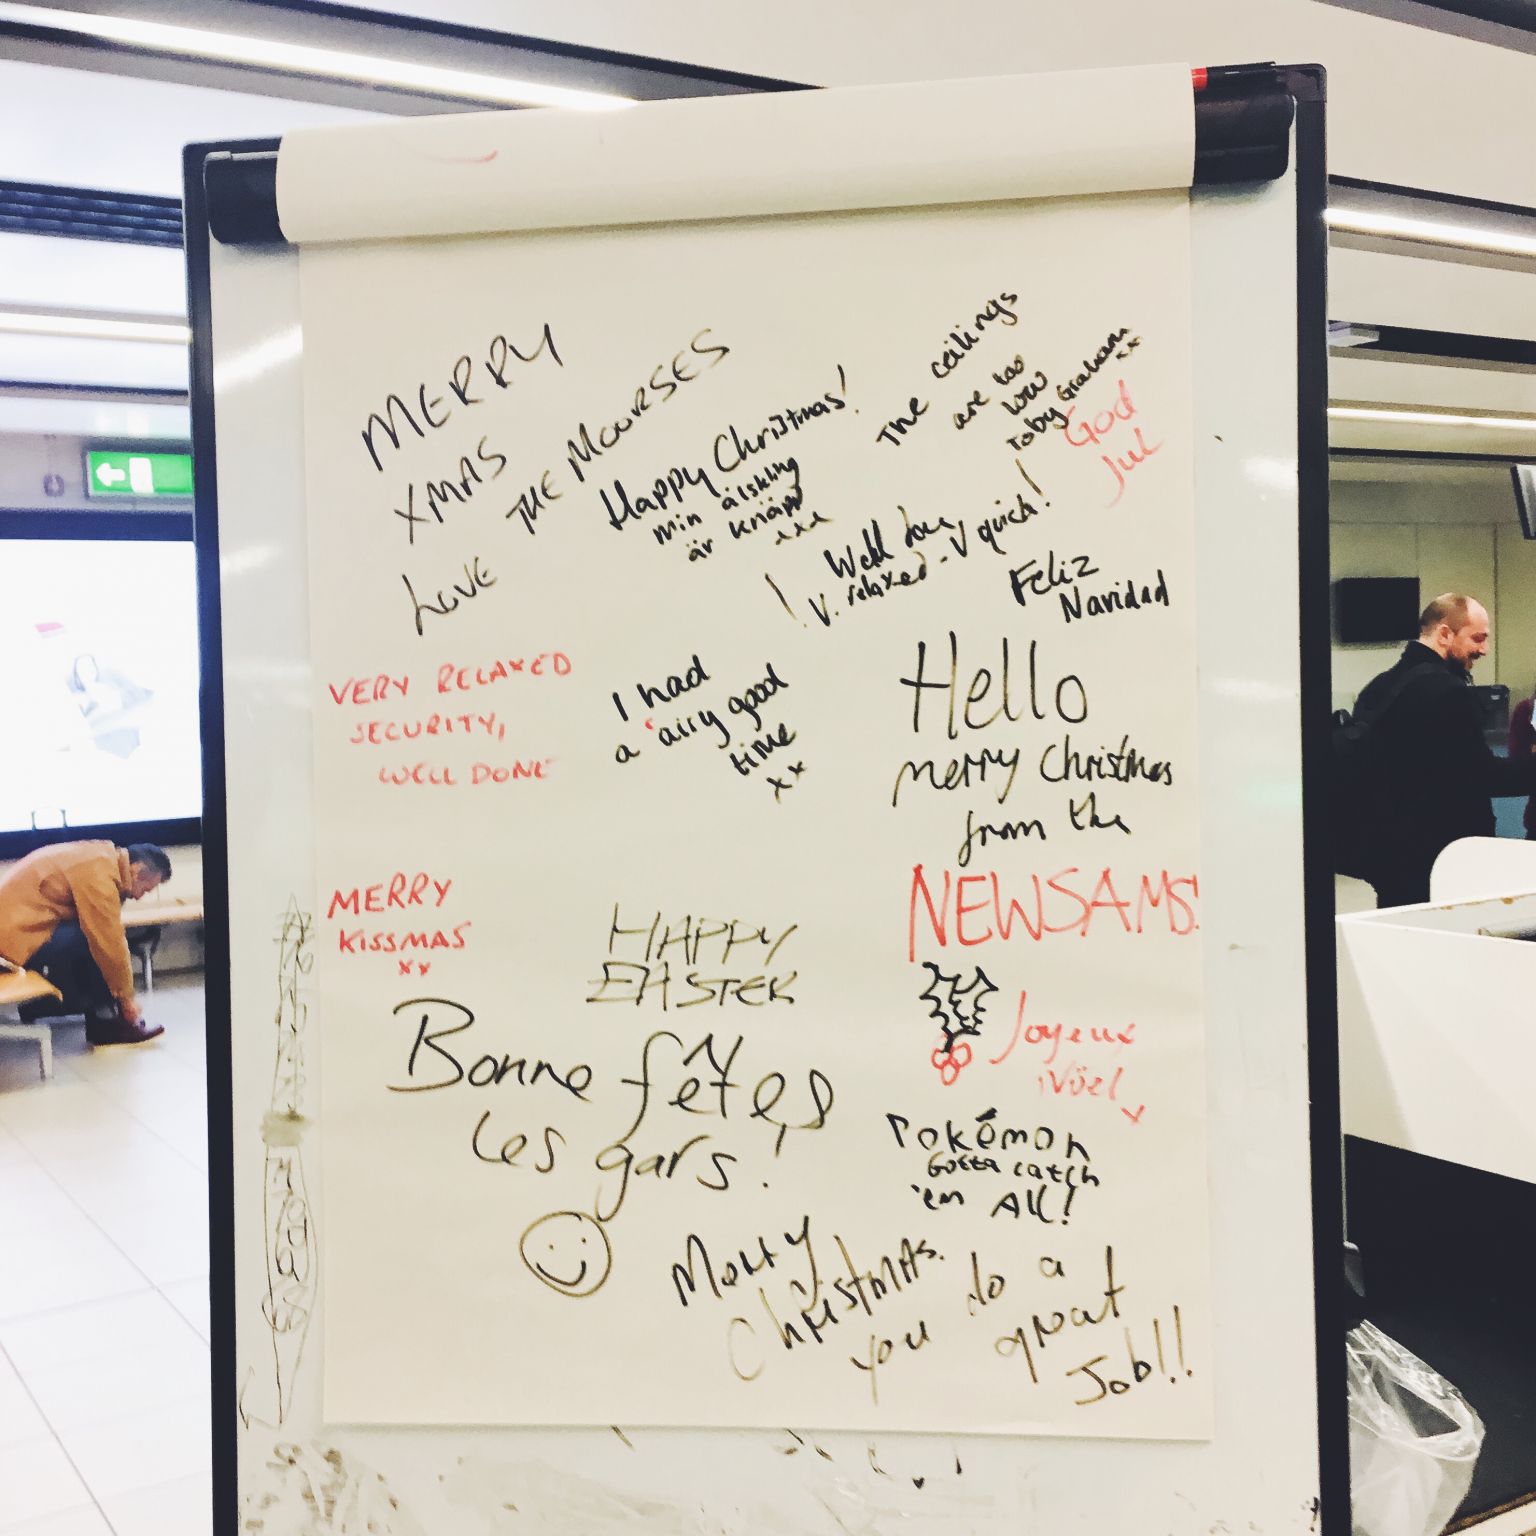 MERRY
XMAS
LOVE THE MOORSES
Happy Christmas!
min älskling
är knäpp
xxx
The ceilings
are too
low
Toby Graham
xx
God
Jul
! Well done
V. relaxed - V quick!
Feliz
Navidad
VERY RELAXED
SECURITY,
WELL DONE
I had
a 'airy good
time
xx
Hello
merry Christmas
from the
NEWSAMS!
MERRY
KISSMAS
xx
HAPPY
EASTER
Joyeux
Nöel
x
Bonne fêtes
les gars!
Pokémon
Gotta catch
'em All!
Merry
Christmas.
you do a
great
Job!!